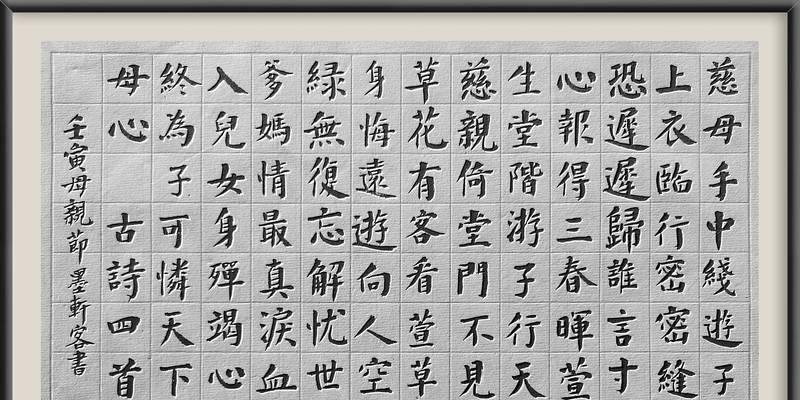 慈母手中綫遊子
上衣臨行密密縫
恐遲遲歸誰言寸
心報得三春暉萱
生堂階游子行天
慈親倚堂門不見
草花有客看萱草
身悔遠遊向人空
緑無復忘解忧世
爹媽情最真淚血
入兒女身殫竭心
終為子可憐天下
母心 古詩四首
壬寅母親節墨軒客書